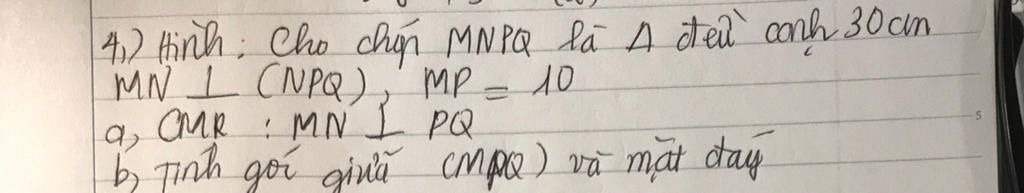 4,) Hình: Cho chóp MNPQ là Δ đều cạnh 30cm
MN ⊥ (NPQ), MP = 10
a, CMR : MN ⊥ PQ
b, Tính góc giữa (MPQ) và mặt đáy
5